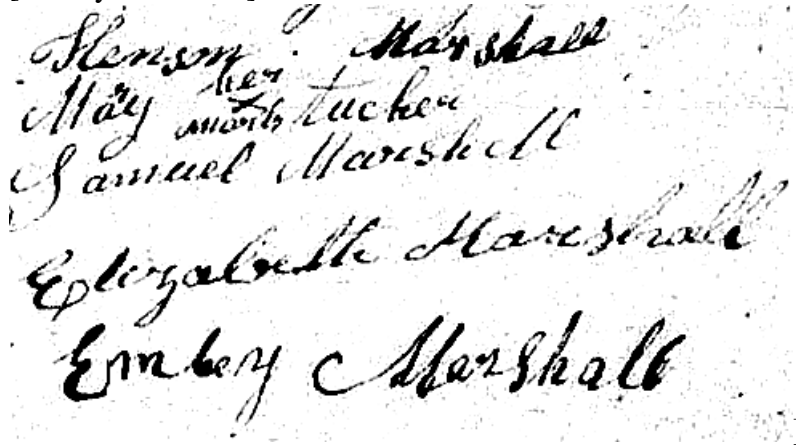 Henson Marshall
her
Mary x Tucker
mark
Samuel Marshall
Elizabeth Marshall
Embery Marshall